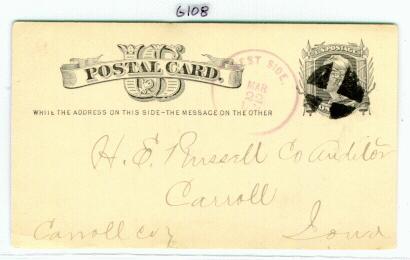 G108
U S
POSTAL CARD.
WEST SIDE.
MAR
22
U.S. POSTAGE
WRITE THE ADDRESS ON THIS SIDE–THE MESSAGE ON THE OTHER
H. E. Russell Co Auditor
Carroll
Carroll Coy Iowa